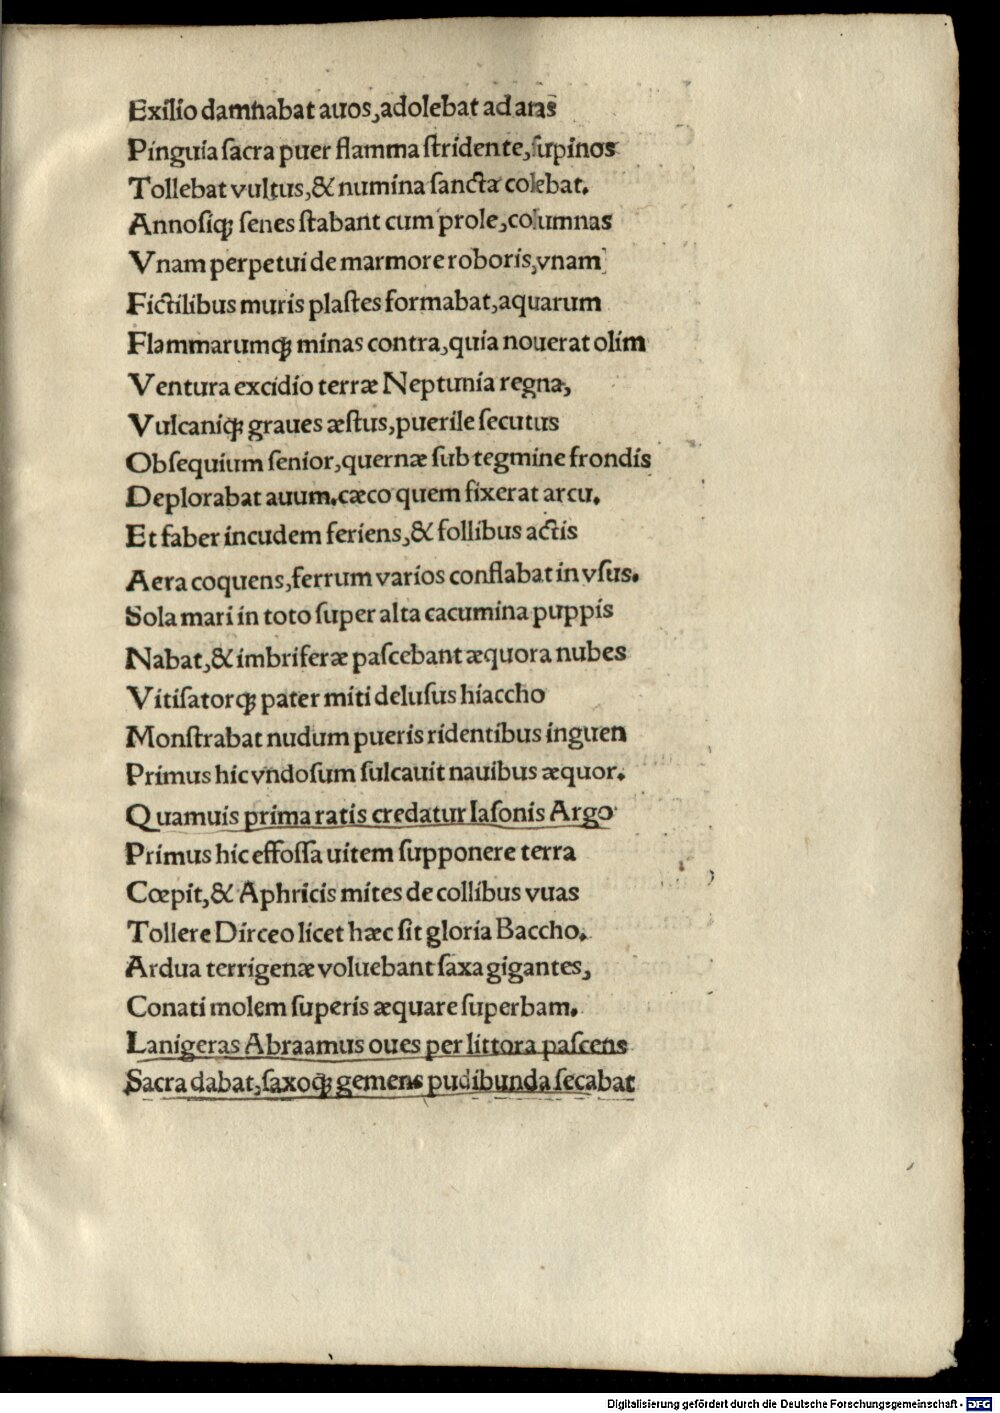 Exilio damnabat auos, adolebat ad aras
Pinguia sacra puer flamma stridente, supinos
Tollebat vultus, & numina sancta colebat.
Annosiqꝫ senes stabant cum prole, columnas
Vnam perpetui de marmore roboris, vnam
Fictilibus muris plastes formabat, aquarum
Flammarumqꝫ minas contra, quia nouerat olim
Ventura excidio terræ Neptunia regna,
Vulcaniqꝫ graues æstus, puerile secutus
Obsequium senior, quernæ sub tegmine frondis
Deplorabat auum. cæco quem fixerat arcu.
Et faber incudem feriens, & follibus actis
Aera coquens, ferrum varios conflabat in vsus.
Sola mari in toto super alta cacumina puppis
Nabat, & imbriferæ pascebant æquora nubes
Vitisatorqꝫ pater miti delusus hiaccho
Monstrabat nudum pueris ridentibus inguen
Primus hic vndosum sulcauit nauibus æquor.
Quamuis prima ratis credatur Iasonis Argo
Primus hic effossa uitem supponere terra
Cœpit, & Aphricis mites de collibus vuas
Tollere Dirceo licet hæc sit gloria Baccho.
Ardua terrigenæ voluebant saxa gigantes,
Conati molem superis æquare superbam.
Lanigeras Abraamus oues per littora pascens
Sacra dabat, saxoqꝫ gemens pudibunda secabat
Digitalisierung gefördert durch die Deutsche Forschungsgemeinschaft - DFG